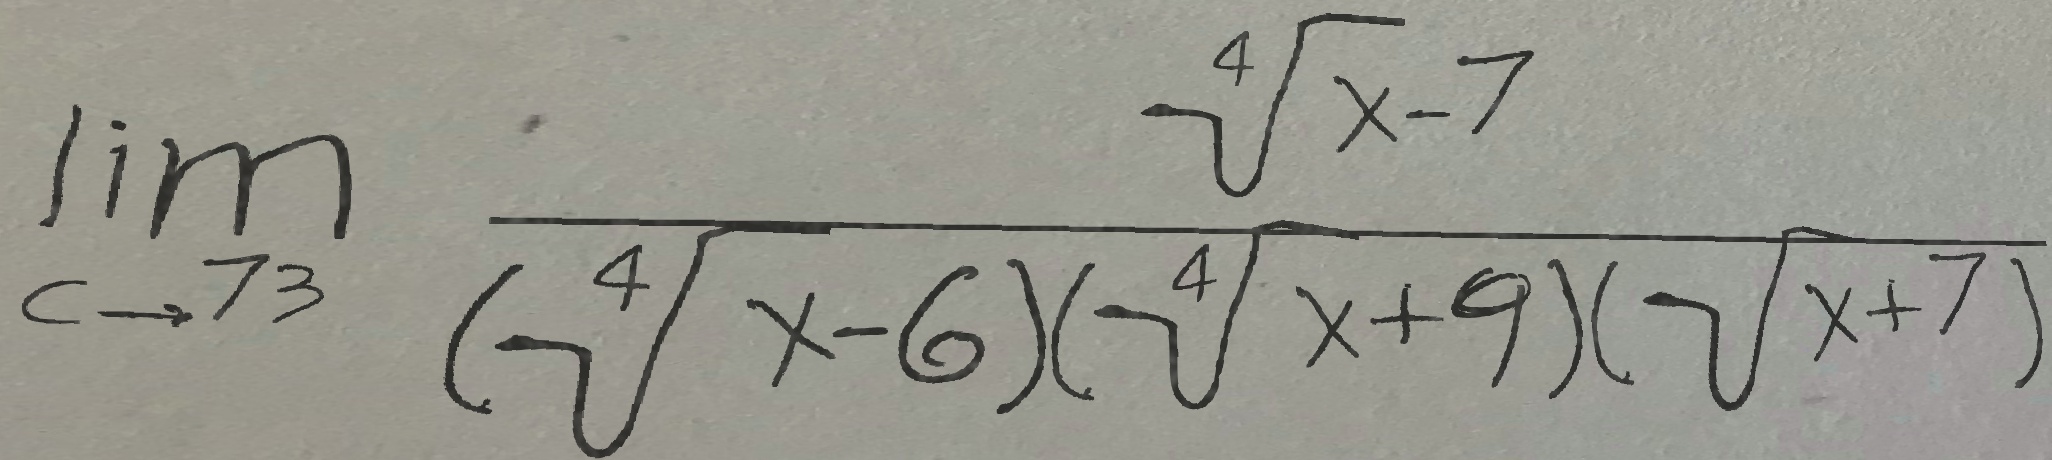 \lim_{c \to 73} \frac{\sqrt[4]{x-7}}{(\sqrt[4]{x-6})(\sqrt[4]{x+9})(\sqrt{x+7})}